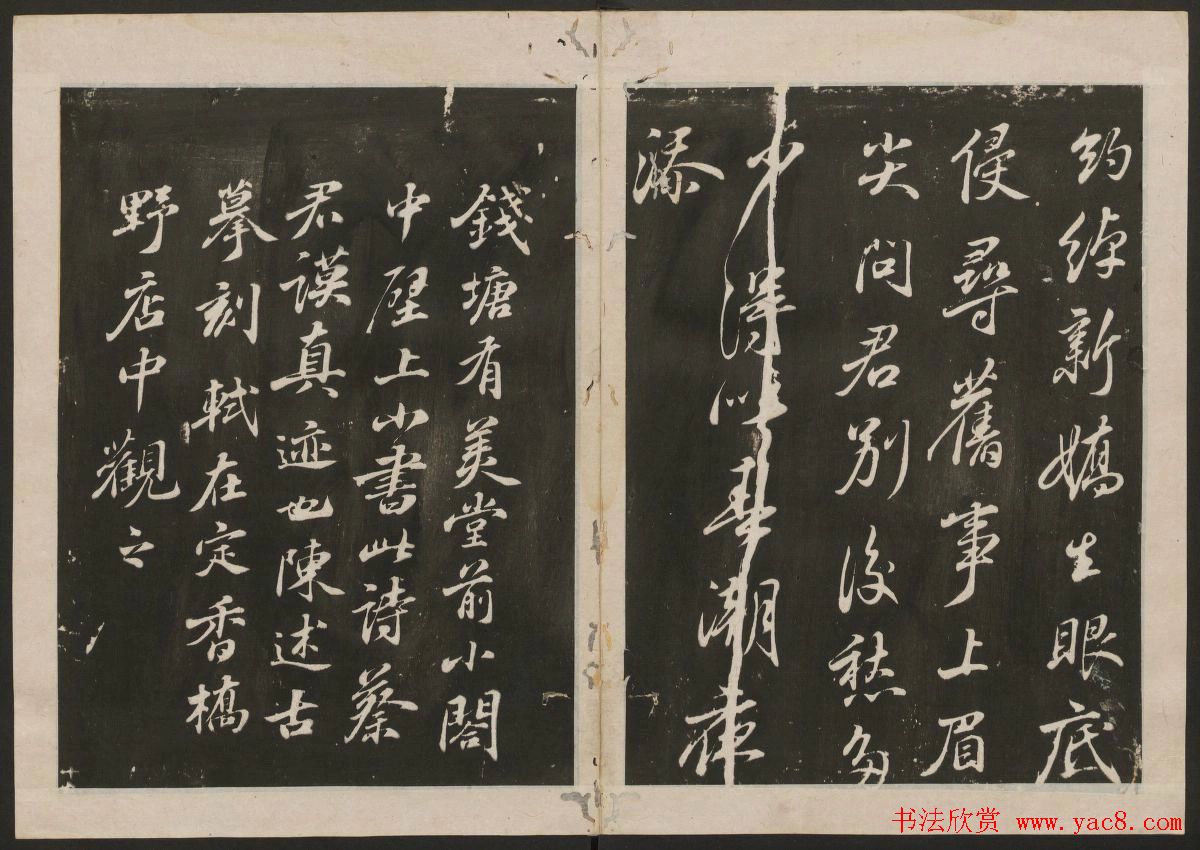 約綽新嬌生眼底
侵尋舊事上眉
尖問君別後愁多
少得似春潮夜
添
錢塘有美堂前小閣
中壁上小書此詩蔡
君謨真迹也陳述古
摹刻軾在定香橋
野店中觀之
书法欣赏 www.yac8.com